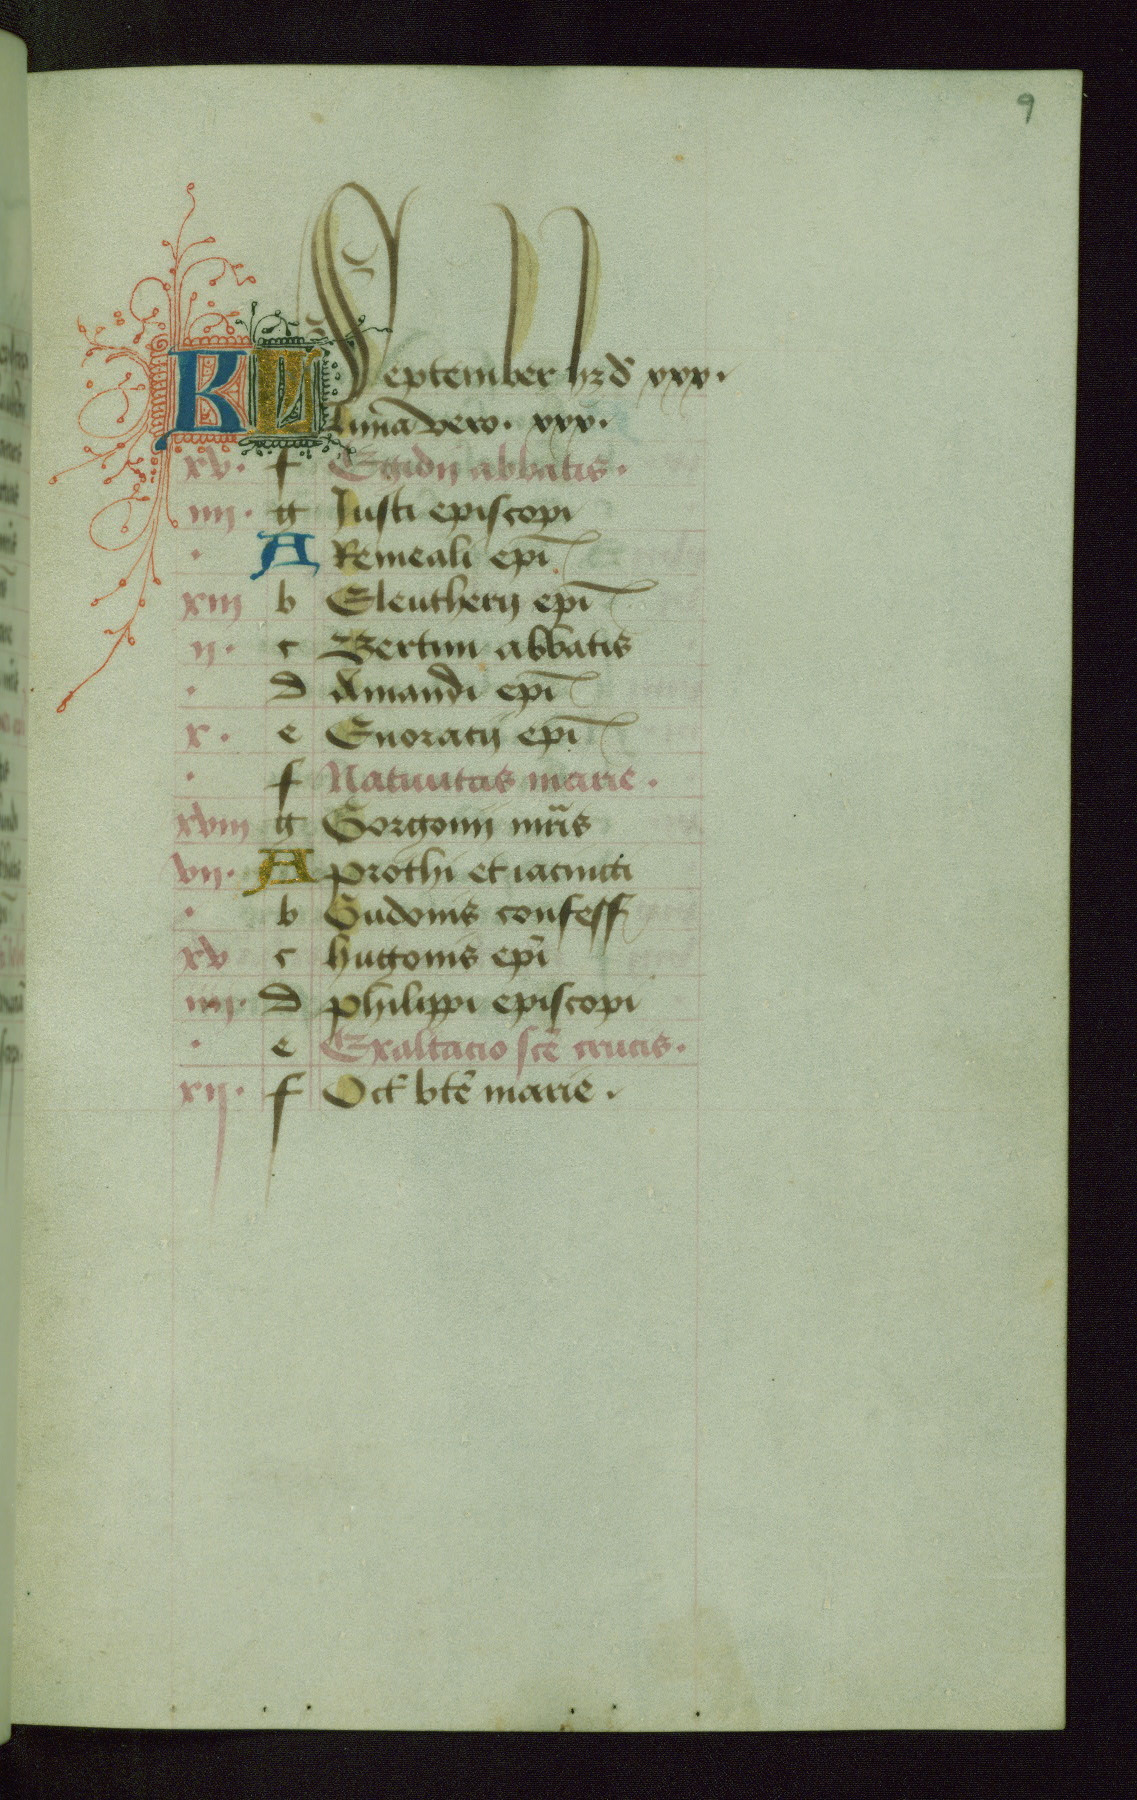 9
KL September hz d xxx.
luna vero. xxx.
xv. f Egidij abbatis.
iiii. g Justi episcopi
. A Remeali epi
xiii b Eleutherij epi
ii. c Bertini abbatis
. d Amandi epi
x. e Enoratij epi
. f Natiuitas marie.
xviii g Gorgonij mris
vii. A Prothi et iacincti
. b Gudonis confess
xv c hugonis epi
iiii. d Philippi episcopi
. e Exaltacio sce crucis.
xii. f Oct bte marie.